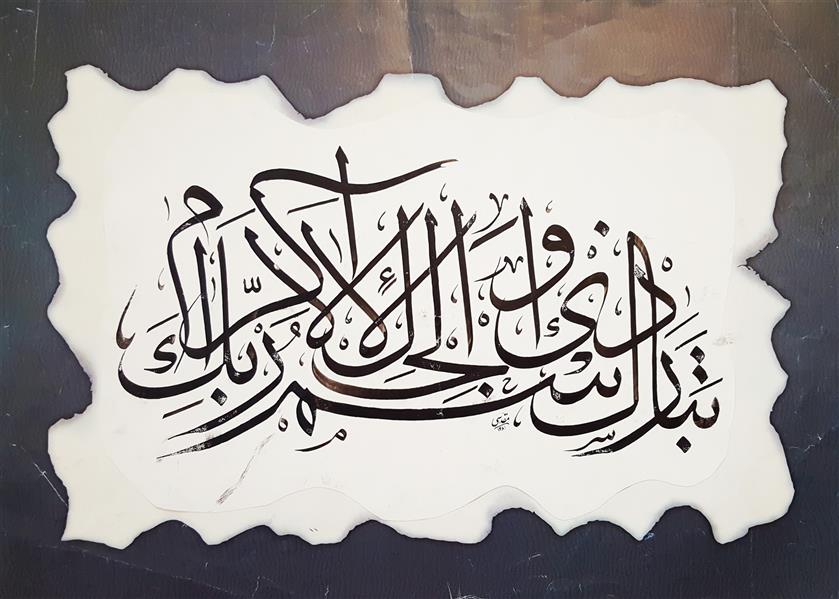 تبارك اسم ربك ذي الجلال والإكرام